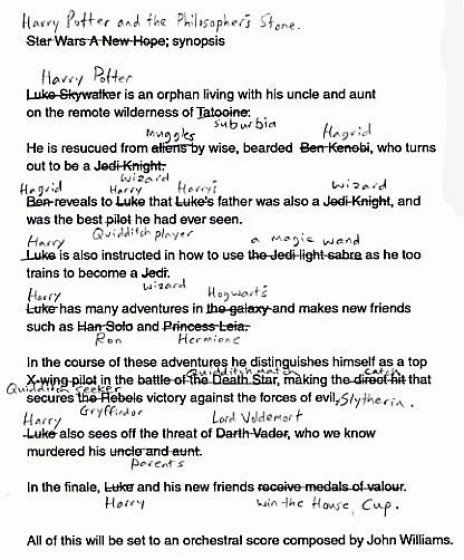 Harry Potter and the Philosopher's Stone.
Star Wars A New Hope; synopsis
Harry Potter
Luke Skywalker is an orphan living with his uncle and aunt
on the remote wilderness of Tatooine.
suburbia
Muggles Hagrid
He is resucued from aliens by wise, bearded Ben Kenobi, who turns
out to be a Jedi Knight.
Wizard
Hagrid Harry Harry's Wizard
Ben reveals to Luke that Luke's father was also a Jedi Knight, and
was the best pilot he had ever seen.
Quidditch player
Harry a magic wand
Luke is also instructed in how to use the Jedi light sabre as he too
trains to become a Jedi.
Wizard
Harry Hogwarts
Luke has many adventures in the galaxy and makes new friends
such as Han Solo and Princess Leia.
Ron Hermione
In the course of these adventures he distinguishes himself as a top
Quidditch match catch
X-wing pilot in the battle of the Death Star, making the direct hit that
Quidditch Seeker
secures the Rebels victory against the forces of evil, Slytherin.
Gryffindor
Harry Lord Voldemort
Luke also sees off the threat of Darth Vader, who we know
murdered his uncle and aunt.
Parents
In the finale, Luke and his new friends receive medals of valour.
Harry win the House Cup.
All of this will be set to an orchestral score composed by John Williams.